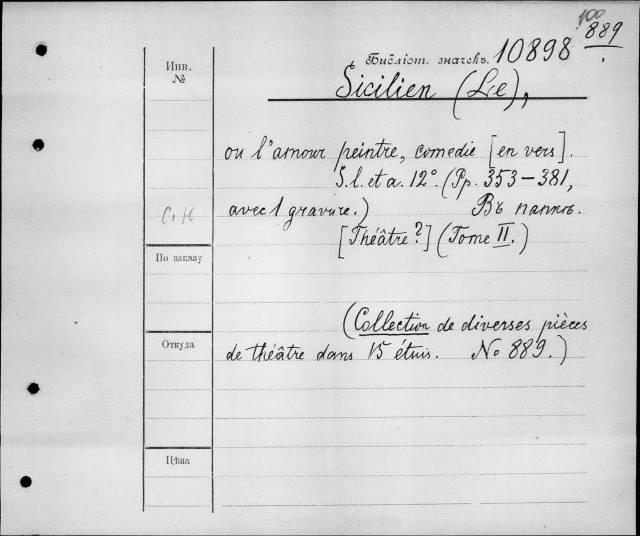 100
889
Инв.
№
Библіот. значекъ. 10898
Sicilien (Le),
ou l'amour peintre, comedie [en vers].
S. l. et a. 12°. (Pp. 353–381,
avec 1 gravure.) Въ папкѣ.
С. Н
[Théâtre?] (Tome II.)
По заказу
(Collection de diverses pièces
Откуда
de théâtre dans 15 étuis. No 889.)
Цѣна